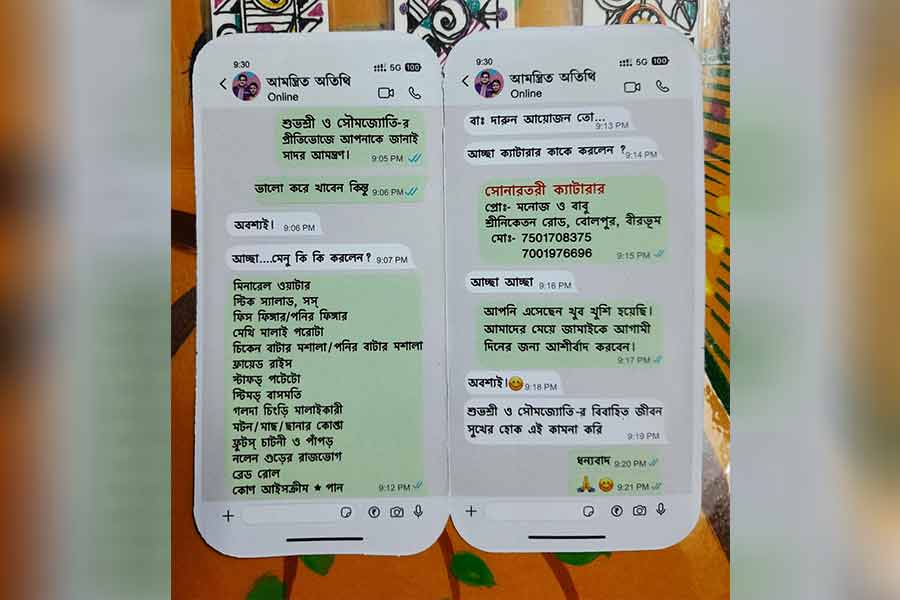 9:30
5G 100
আমন্ত্রিত অতিথি
Online
শুভশ্রী ও সৌমজ্যোতি-র
প্রীতিভোজে আপনাকে জানাই
সাদর আমন্ত্রণ।
9:05 PM
ভালো করে খাবেন কিন্তু 9:06 PM
অবশ্যই। 9:06 PM
আচ্ছা....মেনু কি কি করলেন? 9:07 PM
মিনারেল ওয়াটার
স্টিক স্যালাড, সস্
ফিস ফিঙ্গার/পনির ফিঙ্গার
মেথি মালাই পরোটা
চিকেন বাটার মশালা/পনির বাটার মশালা
ফ্রায়েড রাইস
স্টাফড্ পটেটো
স্টিমড্ বাসমতি
গলদা চিংড়ি মালাইকারী
মটন/মাছ/ছানার কোপ্তা
ফ্রুটস্ চাটনী ও পাঁপড়
নলেন গুড়ের রাজভোগ
ব্রেড রোল
কোণ আইসক্রীম ★ পান
9:12 PM
9:30
5G 100
আমন্ত্রিত অতিথি
Online
বাঃ দারুন আয়োজন তো...
9:13 PM
আচ্ছা ক্যাটারার কাকে করলেন ?
9:14 PM
সোনারতরী ক্যাটারার
প্রোঃ- মনোজ ও বাবু
শ্রীনিকেতন রোড, বোলপুর, বীরভূম
মোঃ- 7501708375
7001976696
9:15 PM
আচ্ছা আচ্ছা 9:16 PM
আপনি এসেছেন খুব খুশি হয়েছি।
আমাদের মেয়ে জামাইকে আগামী
দিনের জন্য আশীর্বাদ করবেন।
9:17 PM
অবশ্যই।😊 9:18 PM
শুভশ্রী ও সৌমজ্যোতি-র বিবাহিত জীবন
সুখের হোক এই কামনা করি
9:19 PM
ধন্যবাদ 9:20 PM
🙏😊 9:21 PM